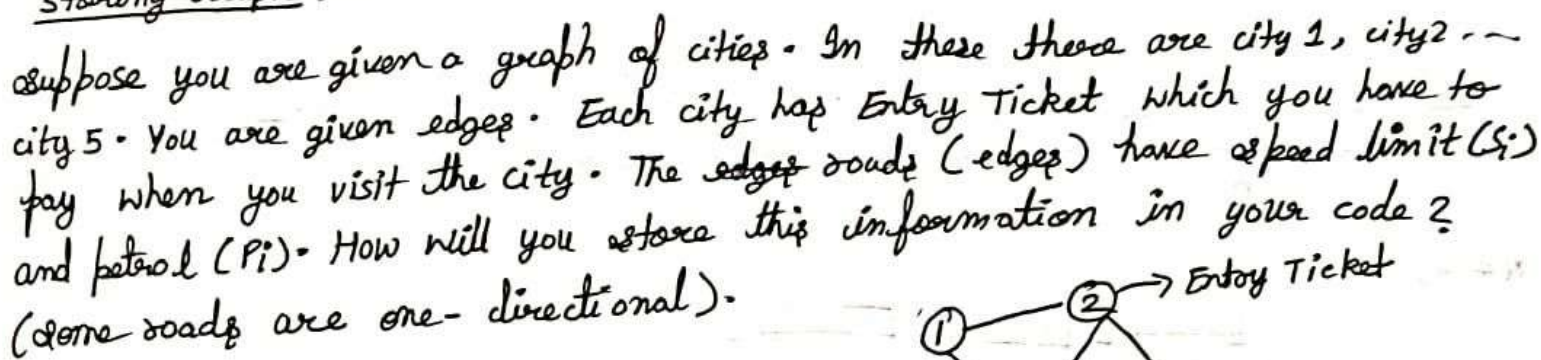 Suppose you are given a graph of cities. In these there are city 1, city2 ...
city 5. You are given edges. Each city has Entry Ticket which you have to
pay when you visit the city. The edges roads (edges) have speed limit (Si)
and petrol (Pi). How will you store this information in your code?
(Some roads are one-directional).
2 → Entry Ticket
1